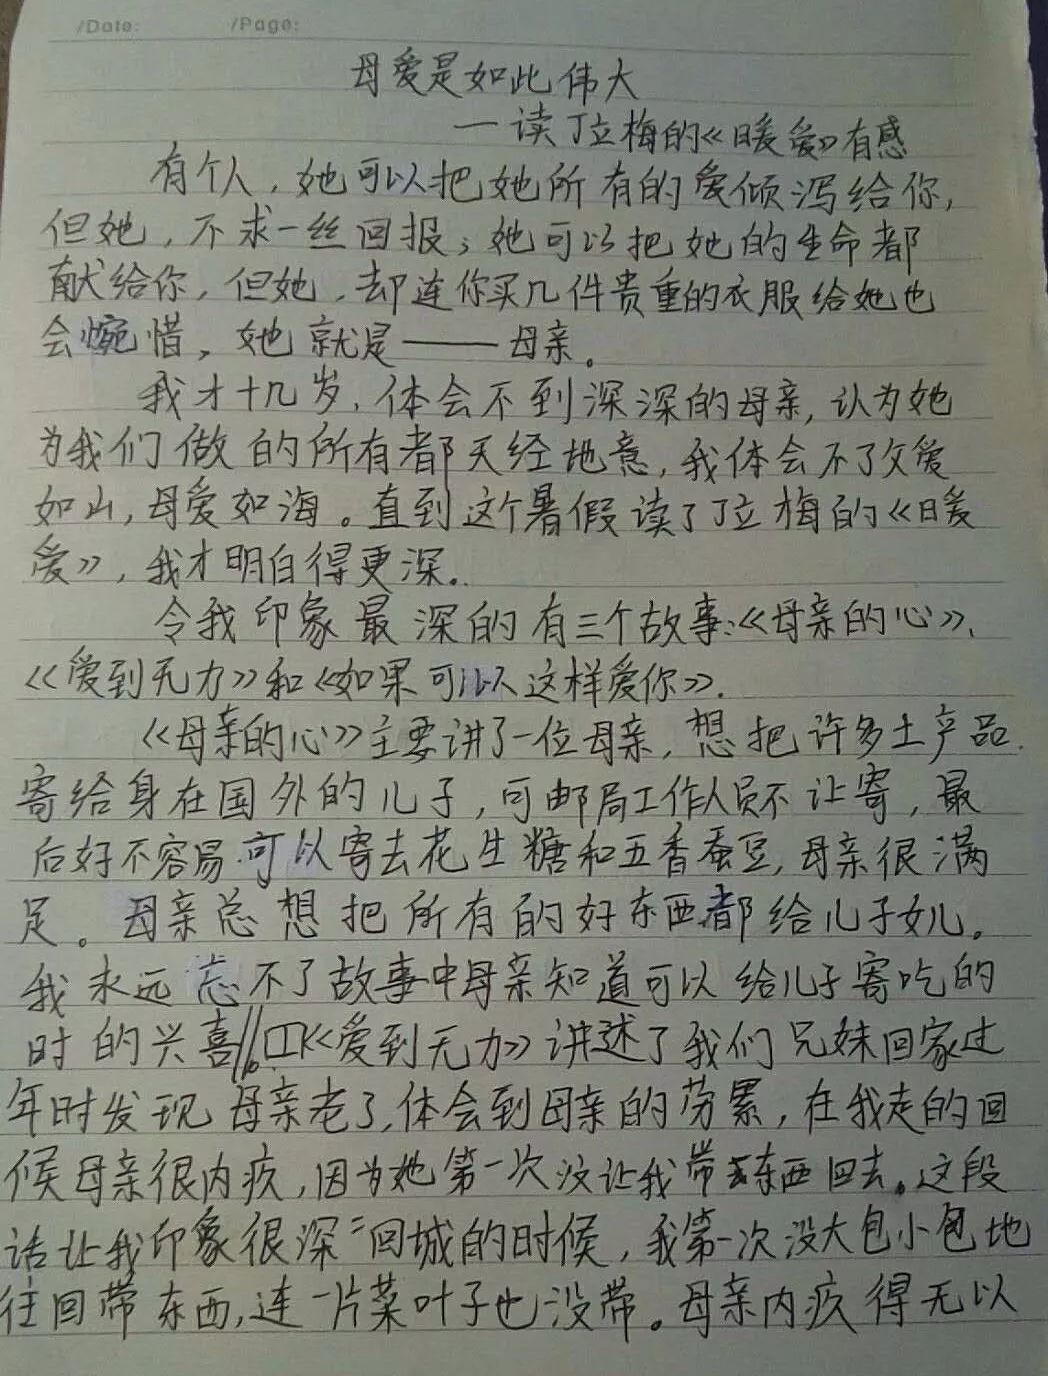 /Date: /Page:
母爱是如此伟大
—读丁立梅的《暖爱》有感
有个人，她可以把她所有的爱倾泻给你，
但她，不求一丝回报；她可以把她的生命都
献给你，但她，却连你买几件贵重的衣服给她也
会惋惜，她就是——母亲。
我才十几岁，体会不到深深的母亲，认为她
为我们做的所有都天经地意，我体会不了父爱
如山，母爱如海。直到这个暑假读了丁立梅的《暖
爱》，我才明白得更深。
令我印象最深的有三个故事：《母亲的心》、
《爱到无力》和《如果可以这样爱你》.
《母亲的心》主要讲了一位母亲，想把许多土产品
寄给身在国外的儿子，可邮局工作人员不让寄，最
后好不容易可以寄去花生糖和五香蚕豆，母亲很满
足。母亲总想把所有的好东西都给儿子女儿。
我永远忘不了故事中母亲知道可以给儿子寄吃的
时的兴喜。《爱到无力》讲述了我们兄妹回家过
年时发现母亲老了，体会到母亲的劳累，在我走的回
候母亲很内疚，因为她第一次没让我带东西回去。这段
话让我印象很深：回城的时候，我第一次没大包小包地
往回带东西，连一片菜叶子也没带。母亲内疚得无以